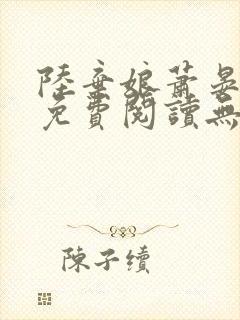 陸棄娘蕭晏
免費閱讀無
陳子續